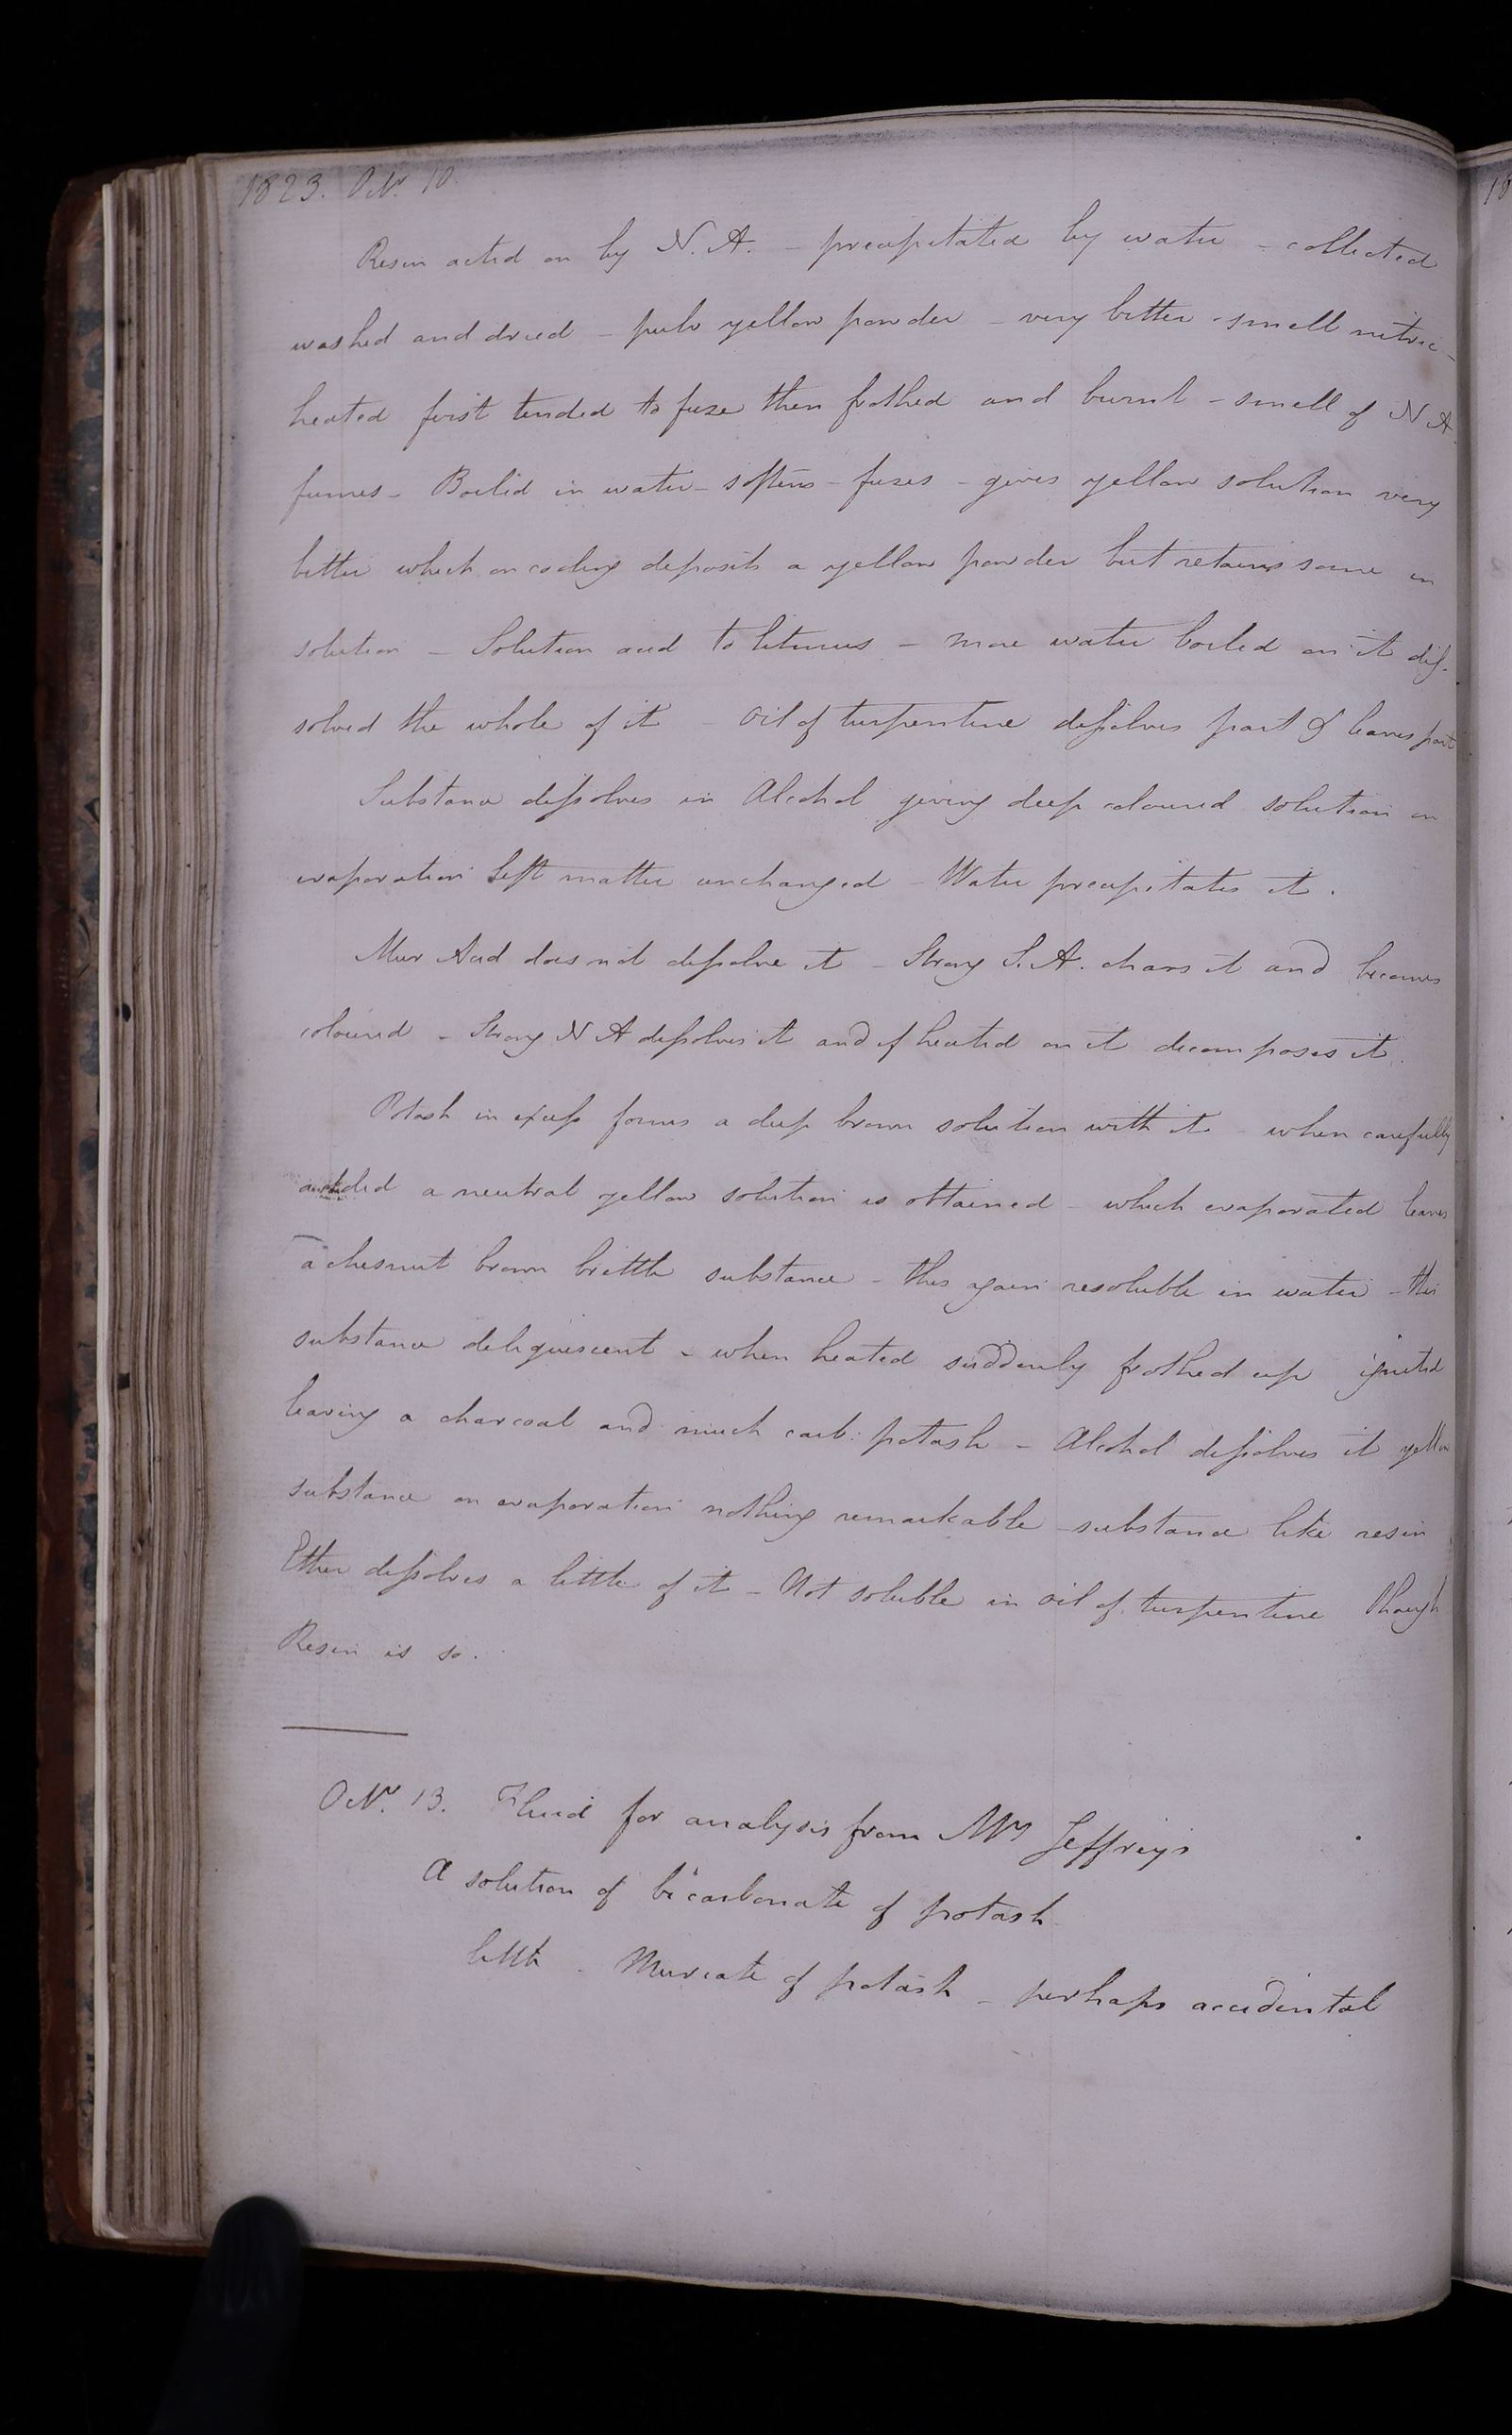 1823. Octr. 10.
Resin acted on by N. A. - precipitated by water - collected
washed and dried - pale yellow powder - very bitter - smell nitric -
heated first tended to fuze then frothed and burnt - smell of N A
fumes - Boiled in water - softens - fuzes - gives yellow solution very
bitter which on cooling deposits a yellow powder but retains some in
solution - Solution acid to litmus - more water boiled on it dis-
solved the whole of it - Oil of turpentine dissolves part & leaves part
Substance dissolves in Alcohol giving deep coloured solution on
evaporation left matter unchanged - Water precipitates it.
Mur Acid does not dissolve it - Strong S. A. chars it and becomes
coloured - Strong N A dissolves it and if heated on it decomposes it.
Potash in excess forms a deep brown solution with it - when carefully
added a neutral yellow solution is obtained - which evaporated leaves
a chesnut brown brittle substance - this again resoluble in water - this
substance deliquescent - when heated suddenly frothed up ignited
leaving a charcoal and much carb: potash - Alcohol dissolves it yellow
substance on evaporation nothing remarkable - substance like resin
Ether dissolves a little of it - Not soluble in oil of turpentine though
Resin is so.
Octr. 13. Fluid for analysis from Mrs Jeffreys
A solution of bicarbonate of potash
little - Muriate of potash - perhaps accidental
18